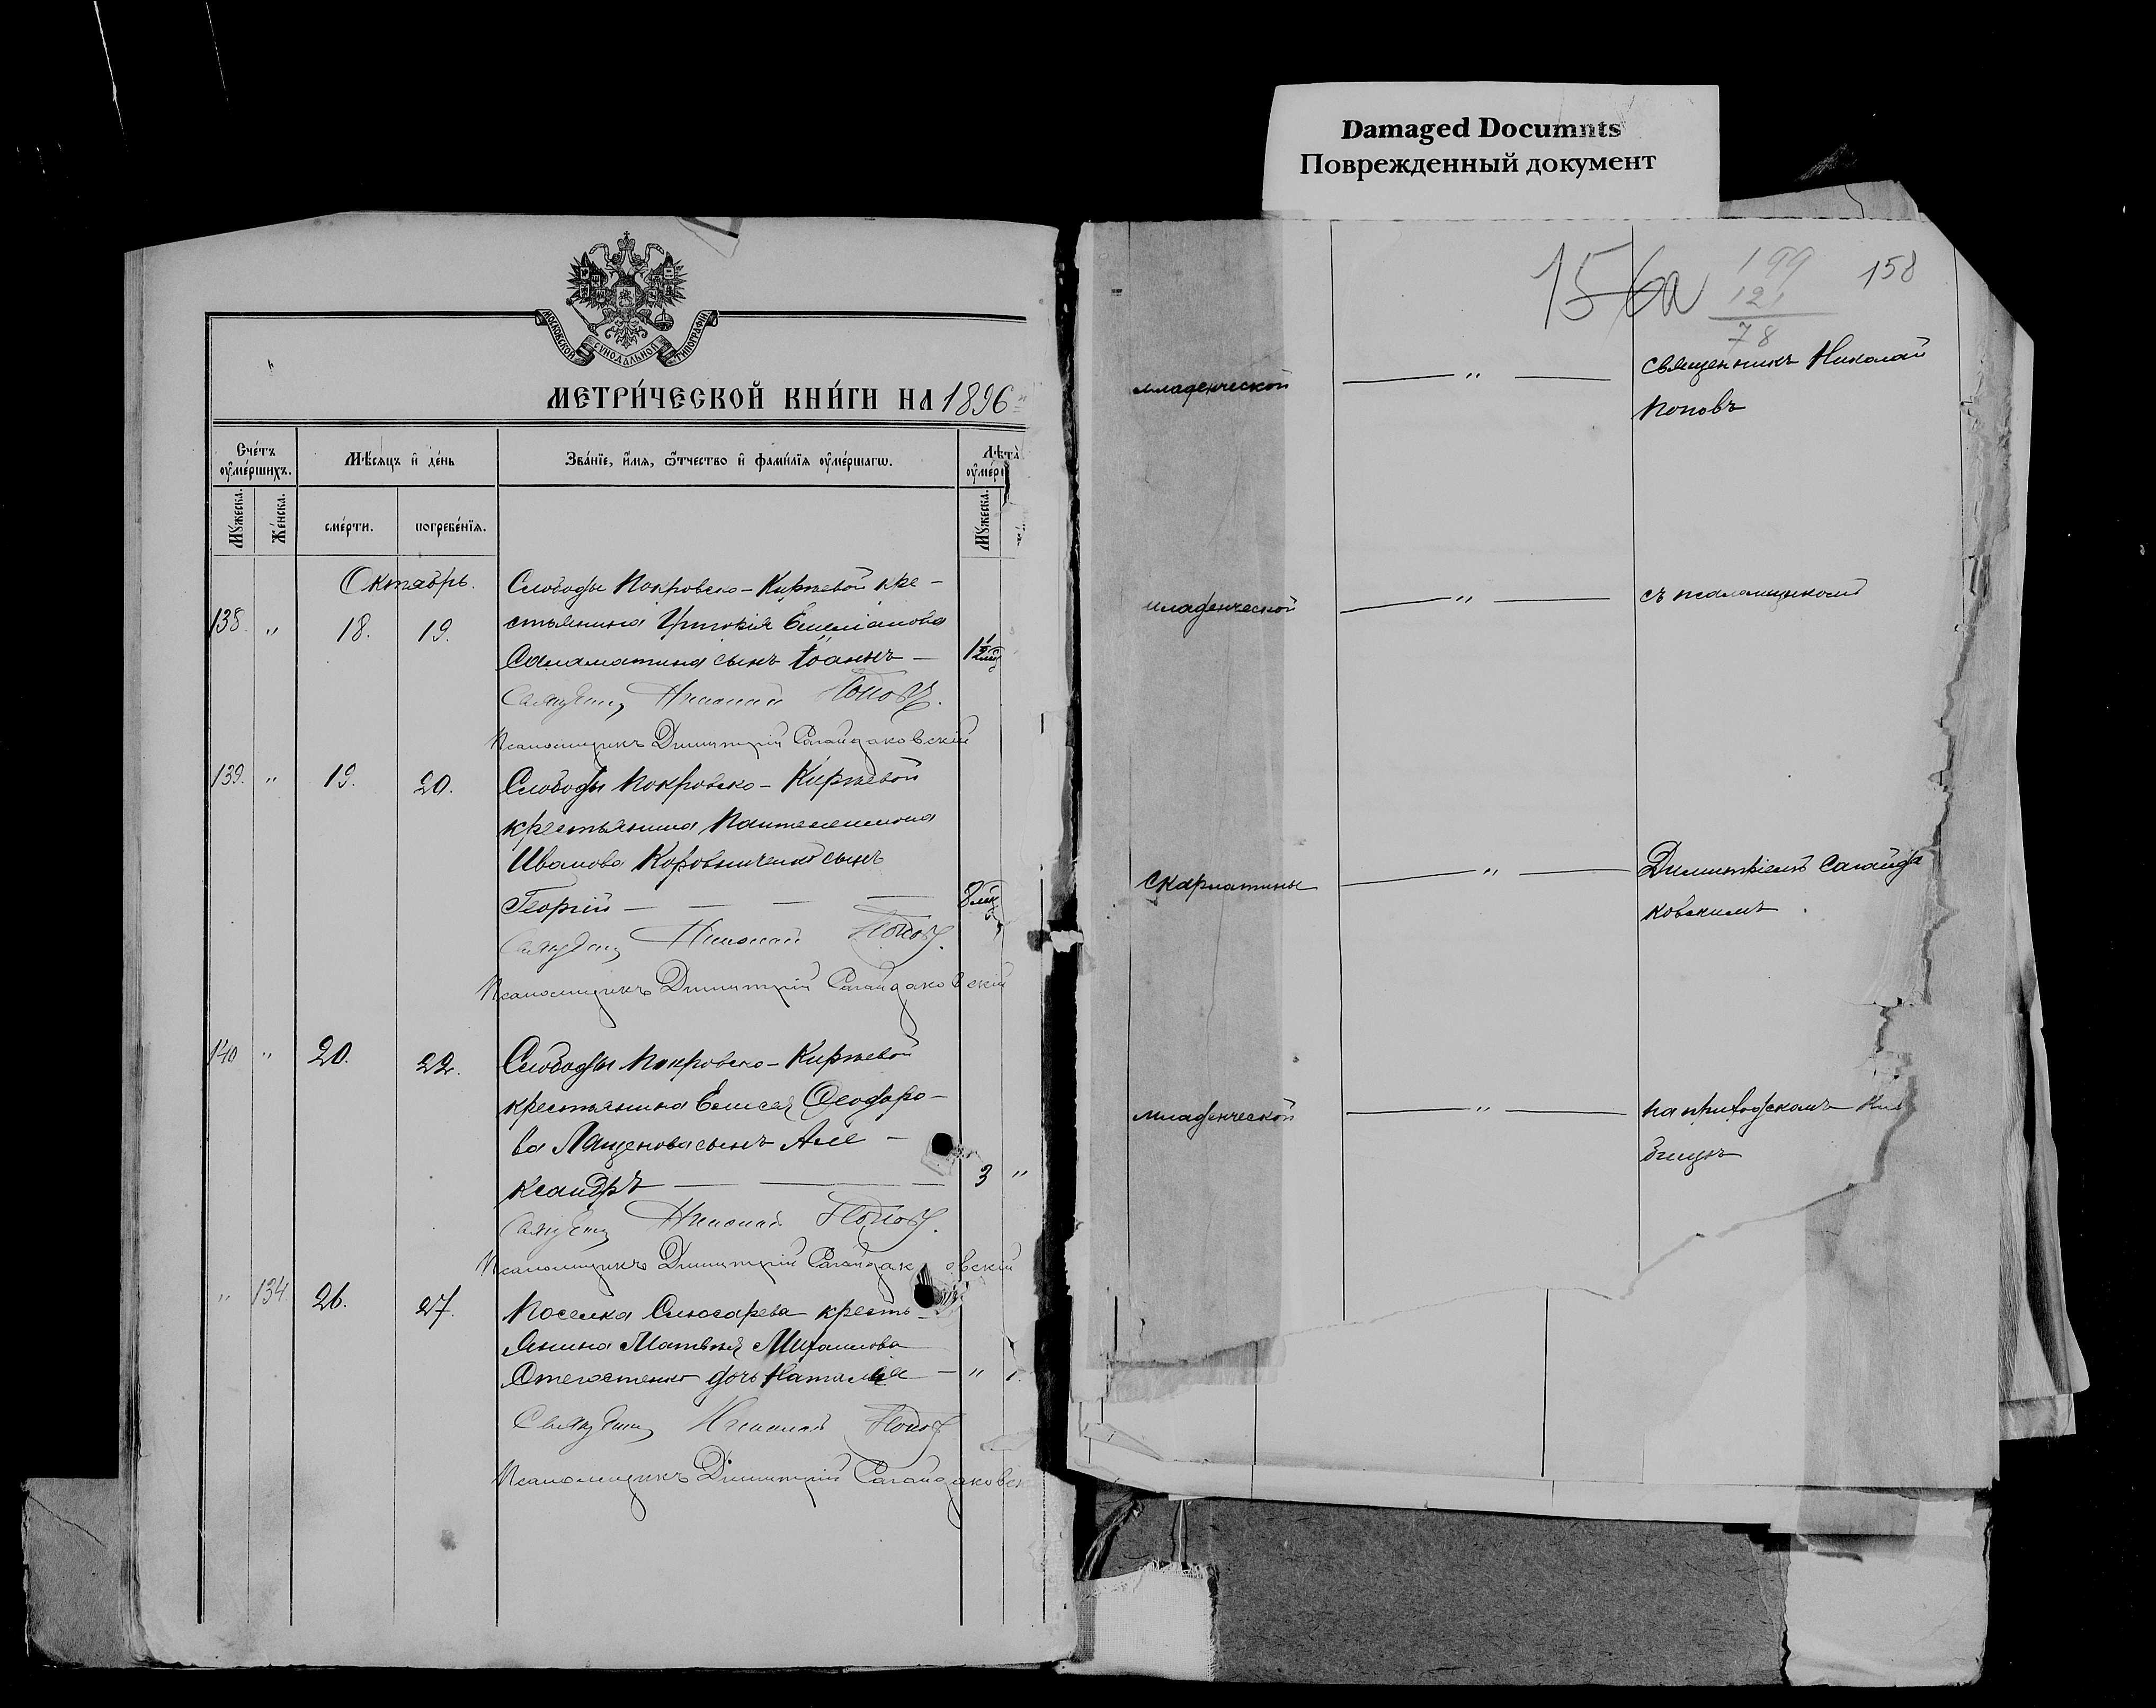 Damaged Documnts
Поврежденный документ
МОСКОВСКОЙ СѴНОДАЛЬНОЙ ТИПОГРАФІИ
МЕТРИ́ЧЕСКОЙ КНИ́ГИ НА 1896
Сче́тъ оу҆ме́ршихъ.
Мѣ́сяцъ и҆ де́нь
Зва́нїе, и҆́мя, ѻ҆́тчество и҆ фами́лїя оу҆ме́ршагѡ.
Лѣта̀
Мꙋ́жеска.
Же́нска.
сме́рти.
погребе́нїя.
Мꙋ́жеска.
Октябрь.
Слободы Покровско-Киреевой кре-
138. " 18. 19. стьянина Емеліанова
Саламатина сынъ Іоаннъ — 1½
Священ Николай Поповъ.
Псаломщикъ Димитрій Сагайдаковскій
139. " 19. 20. Слободы Покровско-Киреевой
крестьянина Пантелеимона
Иванова Коровниченко сынъ
Георгій — — — — 8
Священ Николай Поповъ.
Псаломщикъ Димитрій Сагайдаковскій
140 " 20. 22. Слободы Покровско-Киреевой
крестьянина Елисея Ѳеодоро-
ва Лященова сынъ Але-
ксандръ — — — 3 "
Священ Николай Поповъ.
Псаломщикъ Димитрій Сагайдаковскій
" 134 26. 27. Поселка Слюсарева кресть-
янина Матвея Михаилова
дочь Наталія — " 1.
Священ Николай Поповъ
Псаломщикъ Димитрій Сагайдаковск
156а 199 158
121
78
младенческой — " — священникъ Николай
Поповъ
младенческой — " — съ псаломщикомъ
скарлатины — " — Димитріемъ Сагайда
ковскимъ
младенческой — " — на приходскомъ кла
бищѣ